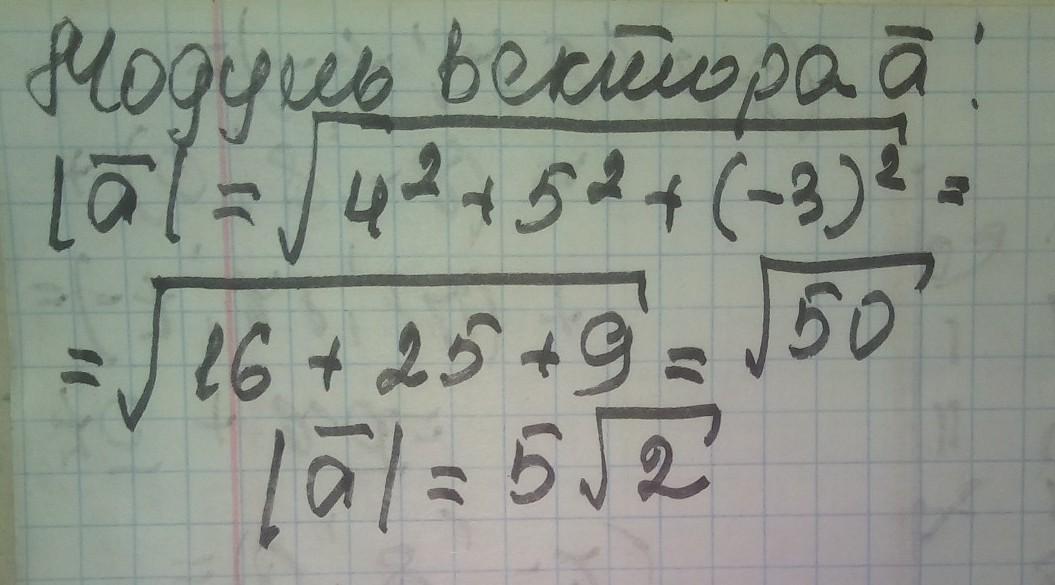 Модуль вектора a̅:
|a̅| = √(4² + 5² + (-3)²) =
= √(16 + 25 + 9) = √50
|a̅| = 5√2